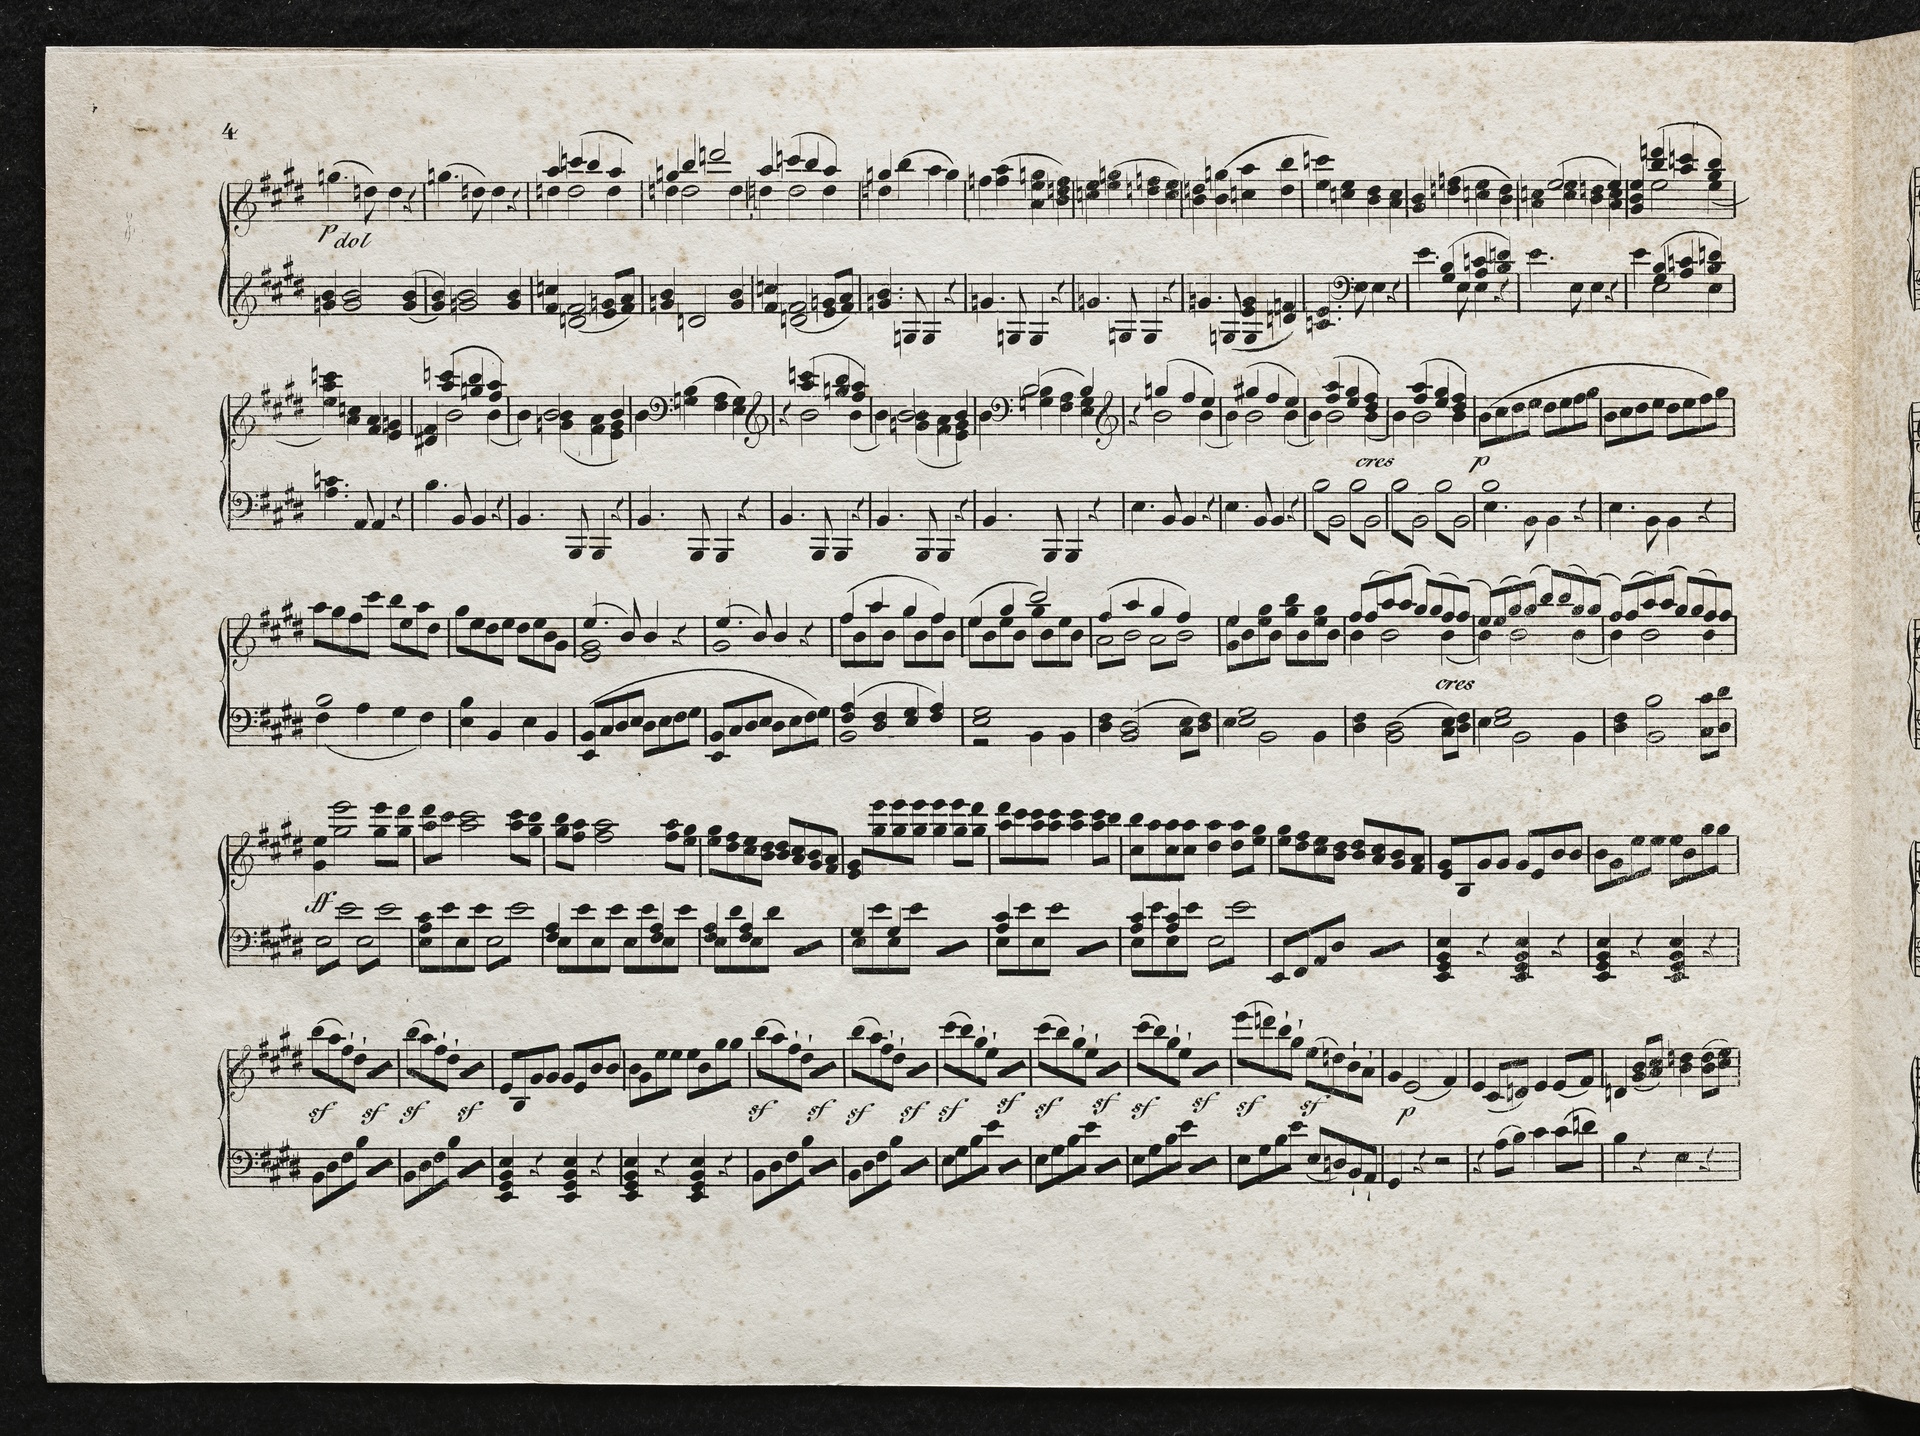 4
p dol
cres p
cres
ff
sf sf sf sf sf sf sf sf sf sf sf sf sf sf sf sf p